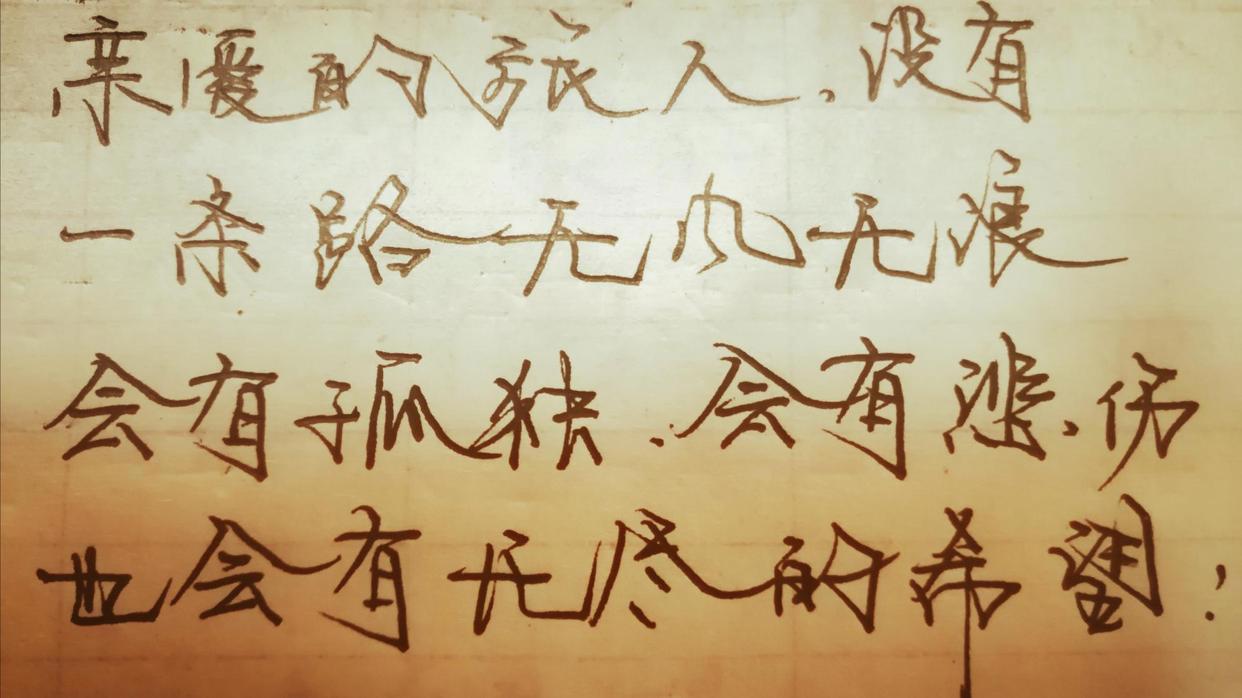 亲爱的旅人，没有
一条路无风无浪
会有孤独，会有悲伤
也会有无尽的希望！